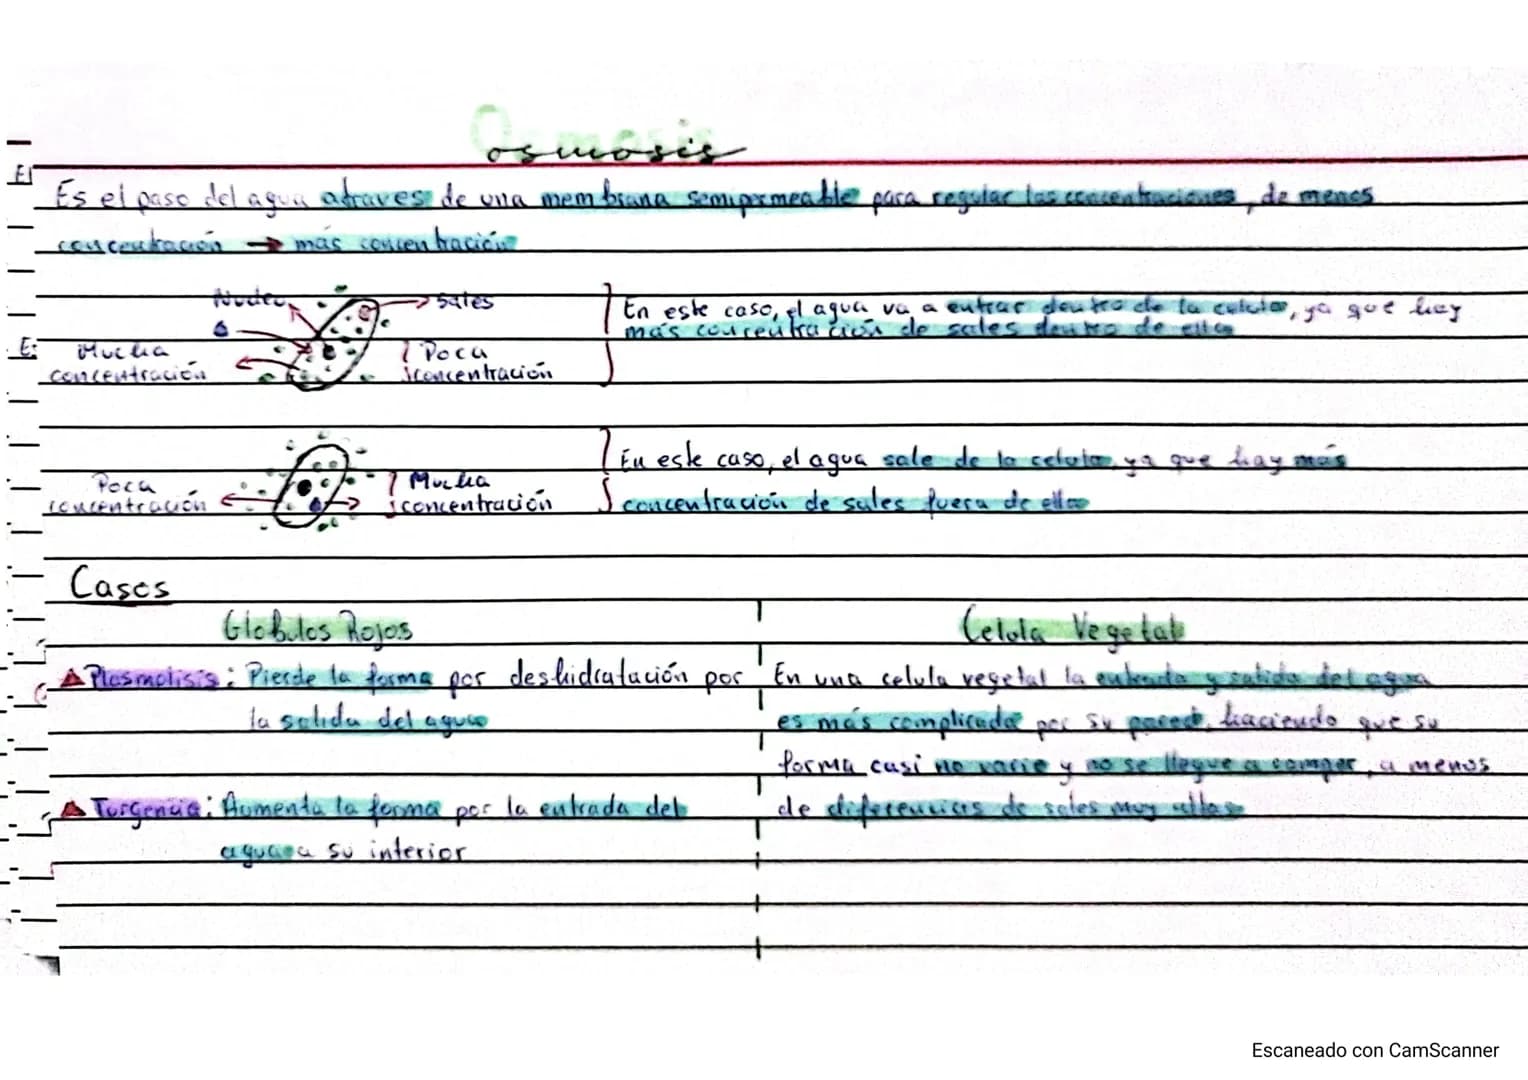 Osmosis
osmosis
Es el paso del agua atraves de una membrana semipermeable para regular las concentraciones, de menos
concentración → más concentración
Nucleo
Sales
Mucha
concentración
Poca
concentración
En este caso, el agua va a entrar dentro de la celula, ya que hay
más concentración de sales dentro de ella
Poca
concentración
Mucha
concentración
En este caso, el agua sale de la celula, ya que hay más
concentración de sales fuera de ella
Casos
Globulos Rojos
Plasmolisis: Pierde la forma por deshidratación por
la salida del agua
Turgencia: Aumenta la forma por la entrada del
agua a su interior
Celula Vegetal
En una celula vegetal la entrada y salida del agua
es más complicada por su pared, haciendo que su
forma casi no varie y no se llegue a romper, a menos
de diferencias de sales muy altas
Escaneado con CamScanner